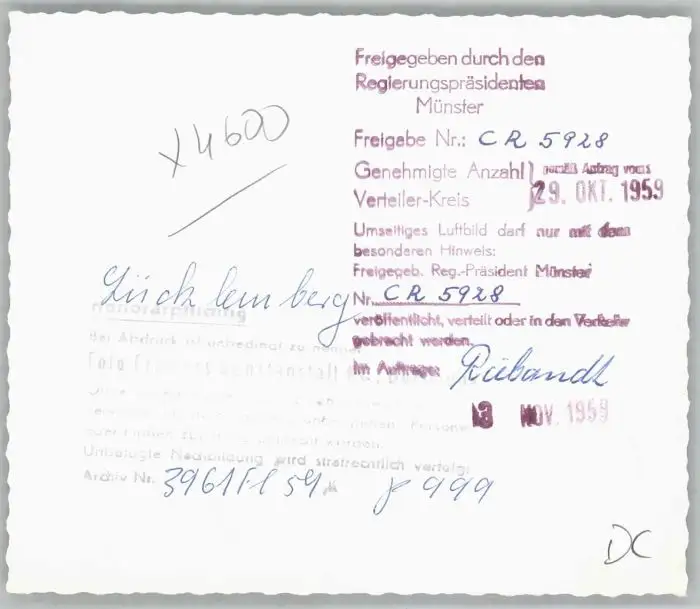 Freigegeben durch den
Regierungspräsidenten
Münster
X4600
Freigabe Nr.: CR 5928
Genehmigte Anzahl } gemäß Antrag vom:
Verteiler-Kreis 29. OKT. 1959
Umseitiges Luftbild darf nur mit dem
besonderen Hinweis:
Freigegeb. Reg.-Präsident Münster
Nr. CR 5928
Lücklemberg
Honorarpflichtig
veröffentlicht, verteilt oder in den Verkehr
gebracht werden.
Bei Abdruck ist unbedingt zu nennen
Im Auftrage:
Foto
13 NOV. 1959
oder Firmen
werden.
Unbefugte Nachbildung wird strafrechtlich verfolgt
Archiv Nr. 3961 Fl 59
999
DC